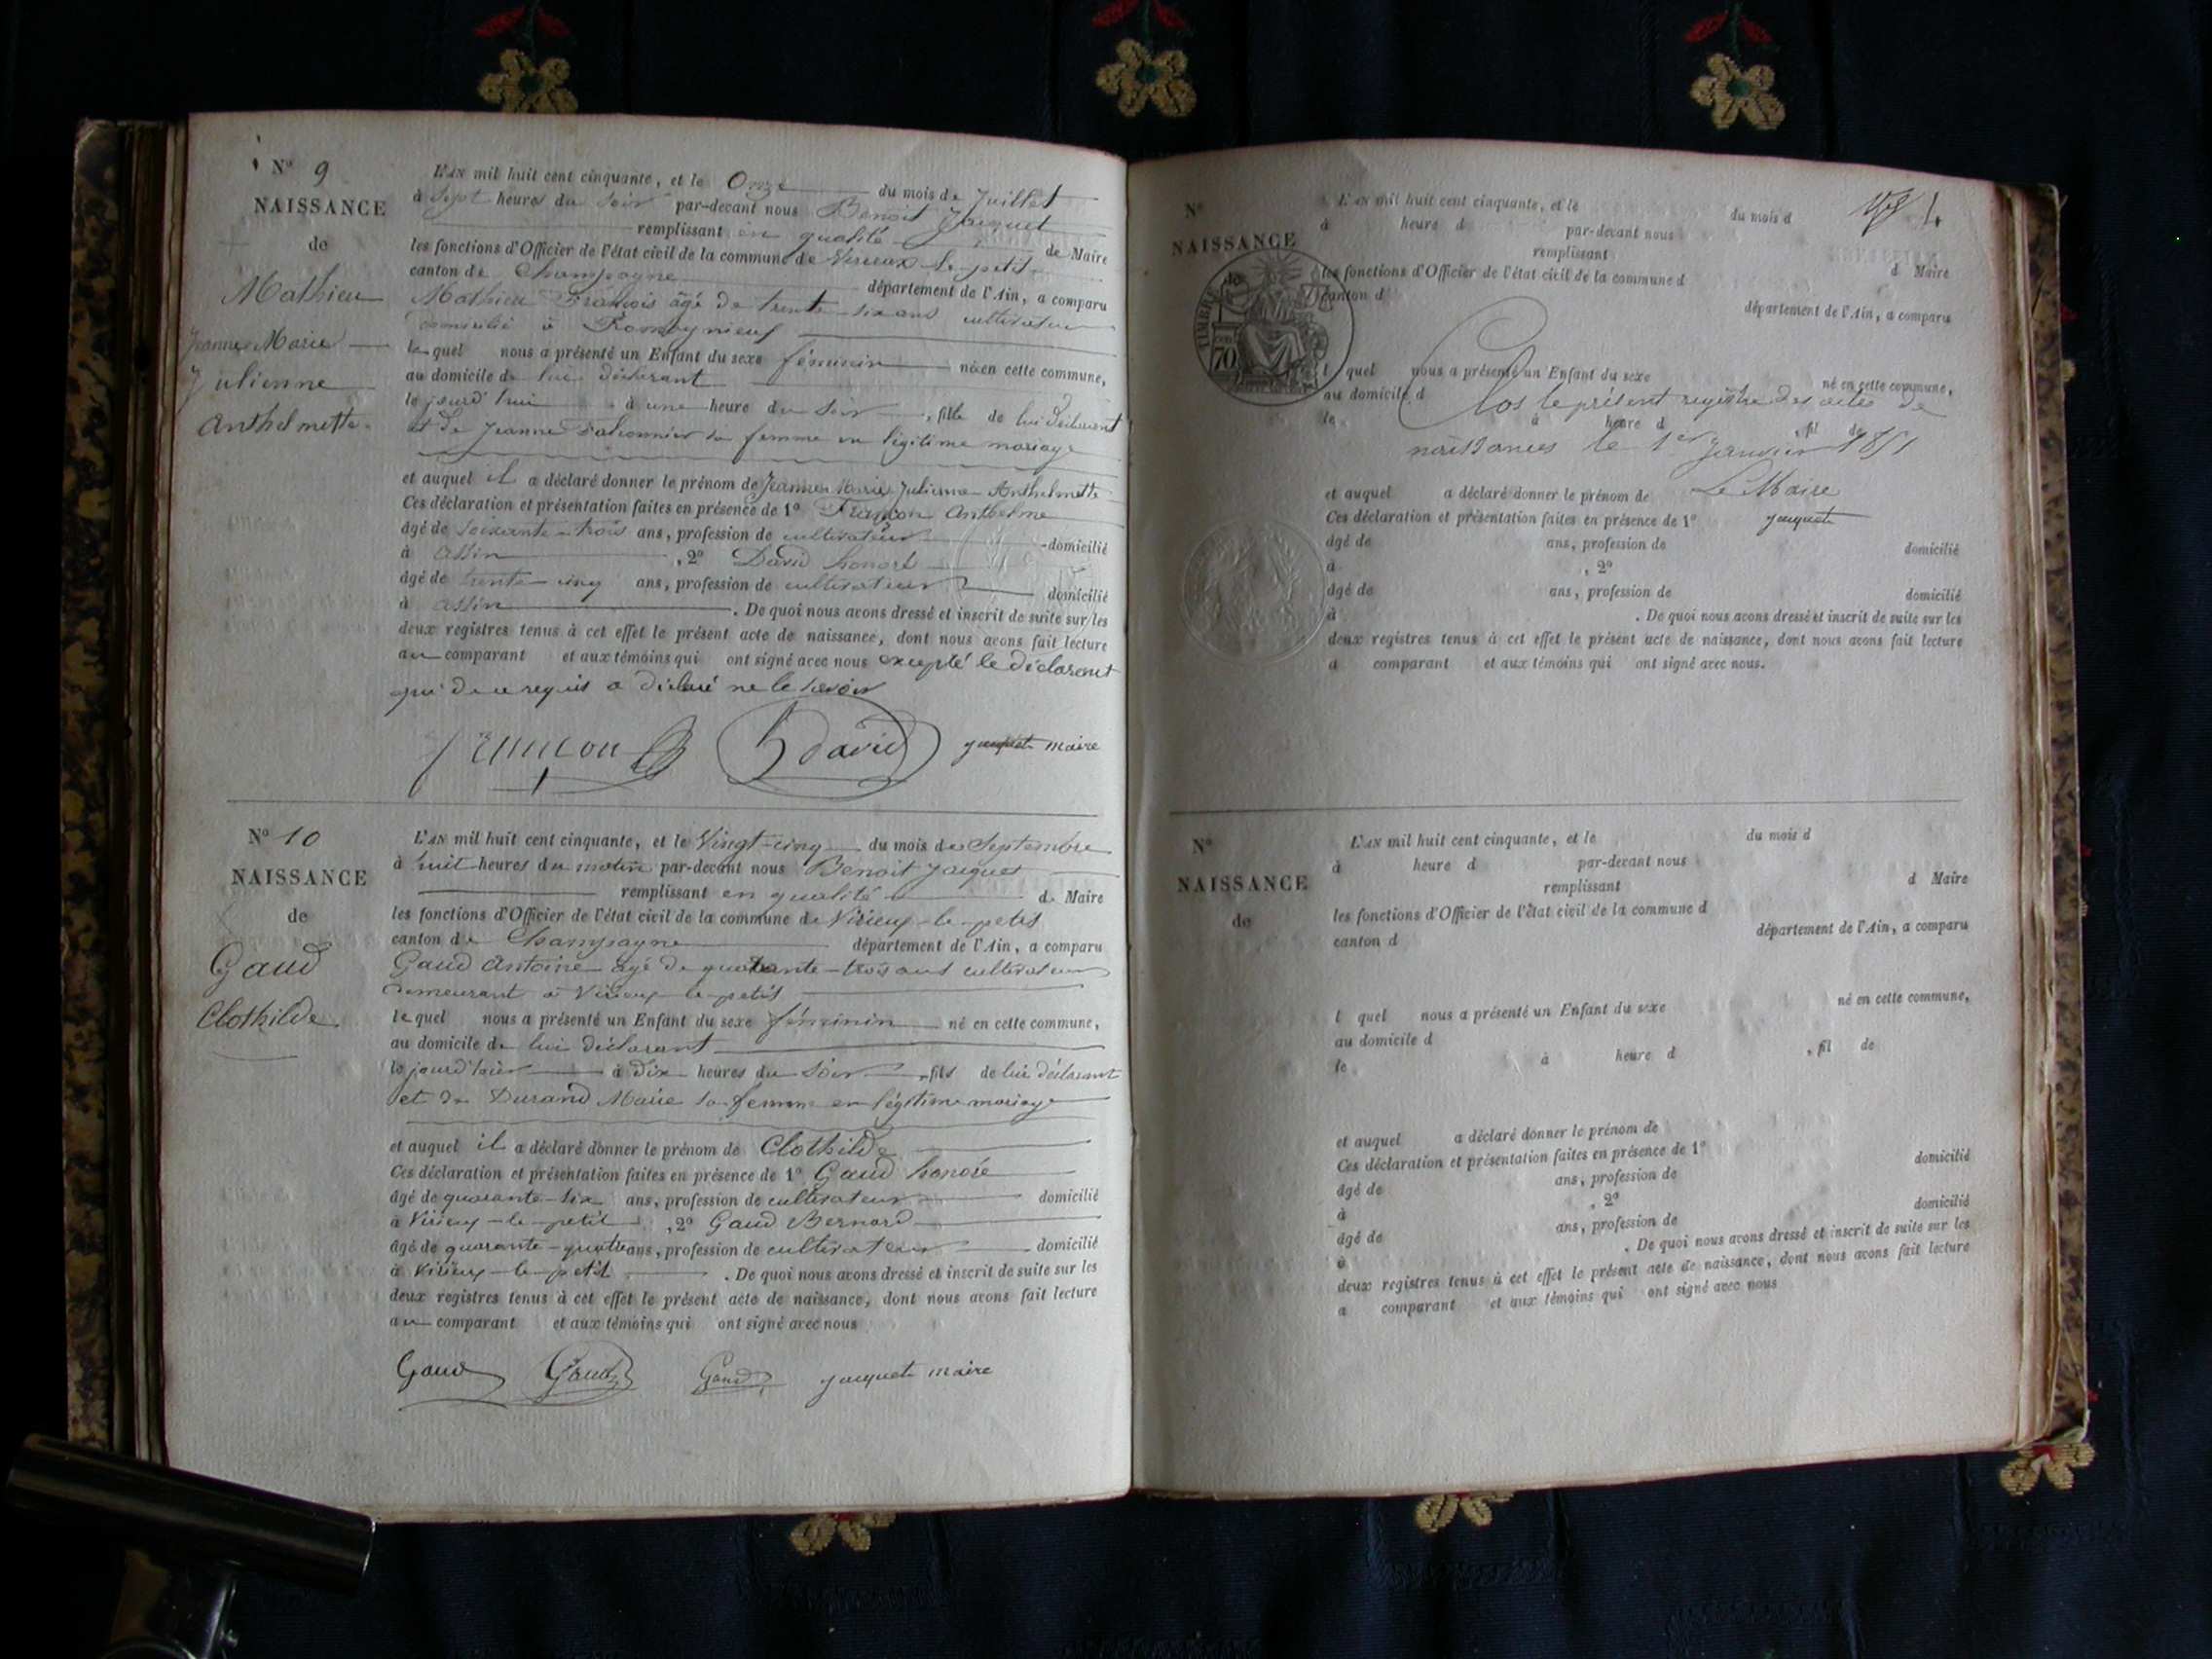 N° 9
NAISSANCE
de
Mathieu
Jeanne Marie
Julienne
Anthelmette
L'AN mil huit cent cinquante, et le Onze du mois de Juillet
à Sept heures du Soir par-devant nous Benoit Jacquet
remplissant en qualité de Maire
les fonctions d'Officier de l'état civil de la commune de Virieux-le-petit
canton de Champagne département de l'Ain, a comparu
Mathieu François âgé de trente-six ans cultivateur
domicilié à
lequel nous a présenté un Enfant du sexe féminin né en cette commune,
au domicile de lui déclarant
le jourd'hui à une heure du Soir, fille de lui déclarant
et de Jeanne sa femme en légitime mariage
et auquel il a déclaré donner le prénom de Jeanne Marie Julienne Anthelmette
Ces déclaration et présentation faites en présence de 1° Françon Anthelme
âgé de soixante-trois ans, profession de cultivateur domicilié
à assin, 2° David honoré
âgé de trente-cinq ans, profession de cultivateur domicilié
à assin. De quoi nous avons dressé et inscrit de suite sur les
deux registres tenus à cet effet le présent acte de naissance, dont nous avons fait lecture
au comparant et aux témoins qui ont signé avec nous excepté le déclarant
qui de ce requis a déclaré ne le savoir
françon h David jacquet maire
N° 10
NAISSANCE
de
Gaud
Clothilde
L'AN mil huit cent cinquante, et le Vingt-cinq du mois de Septembre
à huit heures du matin par-devant nous Benoit Jacquet
remplissant en qualité de Maire
les fonctions d'Officier de l'état civil de la commune de Virieux-le-petit
canton de Champagne département de l'Ain, a comparu
Gaud Antoine âgé de quarante-trois ans cultivateur
demeurant à Virieux-le-petit
lequel nous a présenté un Enfant du sexe féminin né en cette commune,
au domicile de lui déclarant
le jourd'hier à dix heures du Soir, fils de lui déclarant
et de Durand Marie sa femme en légitime mariage
et auquel il a déclaré donner le prénom de Clothilde
Ces déclaration et présentation faites en présence de 1° Gaud honoré
âgé de quarante-six ans, profession de cultivateur domicilié
à Virieux-le-petit, 2° Gaud Bernard
âgé de quarante-quatre ans, profession de cultivateur domicilié
à Virieux-le-petit. De quoi nous avons dressé et inscrit de suite sur les
deux registres tenus à cet effet le présent acte de naissance, dont nous avons fait lecture
au comparant et aux témoins qui ont signé avec nous
Gaud Gaud Gaud jacquet maire
N°
NAISSANCE
de
TIMBRE
70
L'AN mil huit cent cinquante, et le du mois d
à heure d par-devant nous
remplissant d Maire
les fonctions d'Officier de l'état civil de la commune d
canton d département de l'Ain, a comparu
l quel nous a présenté un Enfant du sexe né en cette commune,
au domicile d
Clos le présent registre des actes de
le à heure d, fil de
naissances le 1er Janvier 1851
et auquel a déclaré donner le prénom de
Le Maire
Ces déclaration et présentation faites en présence de 1°
jacquet
âgé de ans, profession de domicilié
à, 2°
âgé de ans, profession de domicilié
à. De quoi nous avons dressé et inscrit de suite sur les
deux registres tenus à cet effet le présent acte de naissance, dont nous avons fait lecture
a comparant et aux témoins qui ont signé avec nous.
N°
NAISSANCE
de
L'AN mil huit cent cinquante, et le du mois d
à heure d par-devant nous
remplissant d Maire
les fonctions d'Officier de l'état civil de la commune d
canton d département de l'Ain, a comparu
l quel nous a présenté un Enfant du sexe né en cette commune,
au domicile d
le à heure d, fil de
et auquel a déclaré donner le prénom de
Ces déclaration et présentation faites en présence de 1°
âgé de ans, profession de domicilié
à, 2°
âgé de ans, profession de domicilié
à. De quoi nous avons dressé et inscrit de suite sur les
deux registres tenus à cet effet le présent acte de naissance, dont nous avons fait lecture
a comparant et aux témoins qui ont signé avec nous